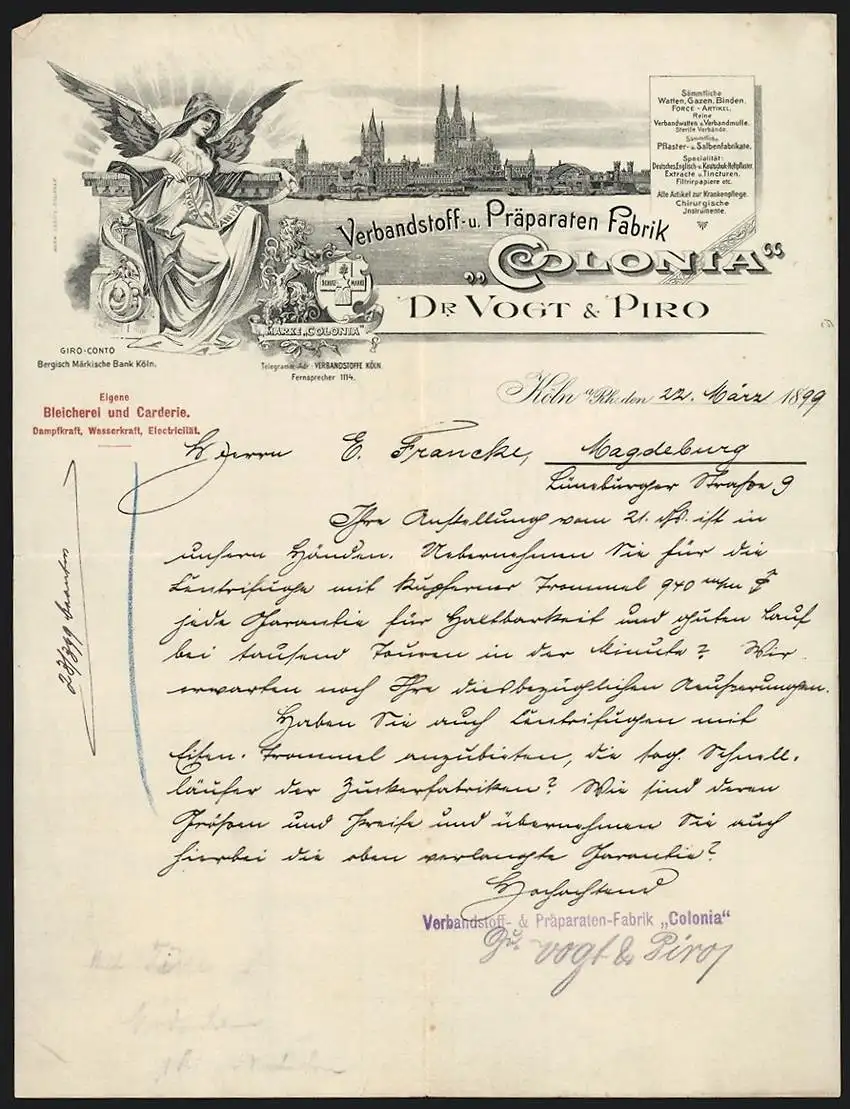 Sämmtliche
Watten, Gazen, Binden.
FORCE-ARTIKEL.
Reine
Verbandwatten u. Verbandmulle.
Sterile Verbände.
Sämmtliche
Pflaster- u. Salbenfabrikate.
Spezialität:
Deutsches, Englisch- u. Kautschuk-Heftpflaster.
Extracte u. Tincturen.
Filtrirpapiere etc.
Alle Artikel zur Krankenpflege.
Chirurgische
Jnstrumente.
Verbandstoff- u. Präparaten Fabrik
„COLONIA“
DR VOGT & PIRO
SCHUTZ MARKE
MARKE „COLONIA“
GIRO-CONTO
Bergisch Märkische Bank Köln.
Telegramm-Adr.: VERBANDSTOFFE KÖLN
Fernsprecher 1114.
Eigene
Bleicherei und Carderie.
Dampfkraft, Wasserkraft, Electricität.
Köln a/Rh. den 22. März 1899
Herrn E. Francke, Magdeburg
Lüneburger Straße 9
Ihre Anstellung vom 21. ds. ist in
unsern Händen. Uebernehmen Sie für die
Centrifuge mit kupferner Trommel 940 m/m
jede Garantie für Haltbarkeit und guten Lauf
bei tausend Touren in der Minute? Wir
erwarten noch Ihre diesbezüglichen Aeußerungen.
Haben Sie auch Centrifugen mit
Eisen-Trommel anzubieten, die sog. Schnell-
läufer der Zuckerfabriken? Wie sind deren
Größen und Preise und übernehmen Sie auch
hierbei die oben verlangte Garantie?
Hochachtend
Verbandstoff- & Präparaten-Fabrik „Colonia“
Dr. Vogt & Piro